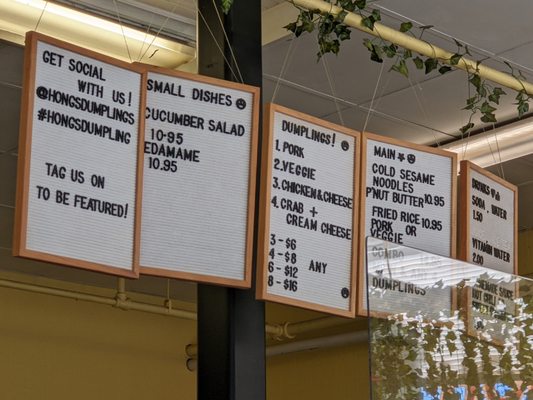 GET SOCIAL
WITH US!
@HONGSDUMPLINGS
#HONGSDUMPLING
TAG US ON
TO BE FEATURED!
SMALL DISHES
CUCUMBER SALAD
10.95
EDAMAME
10.95
DUMPLINGS!
1. PORK
2. VEGGIE
3. CHICKEN&CHEESE
4. CRAB +
CREAM CHEESE
3 - $6
4 - $8
6 - $12
8 - $16
ANY
MAIN
COLD SESAME
NOODLES
P'NUT BUTTER 10.95
FRIED RICE 10.95
PORK OR
VEGGIE
COMBO
DUMPLINGS
DRINKS
SODA WATER
1.50
VITAMIN WATER
2.00